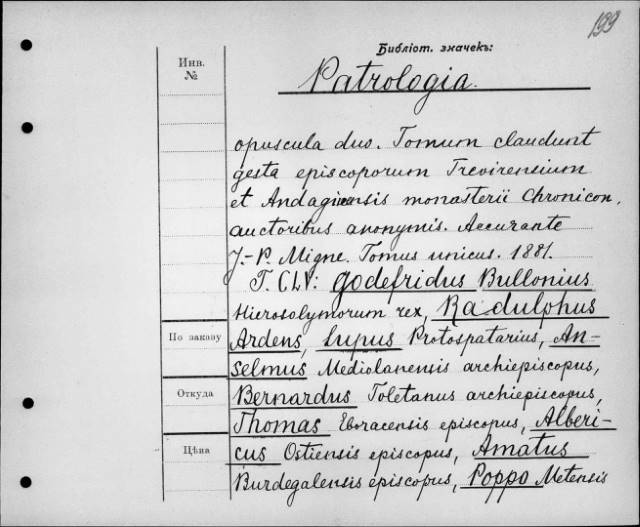 199
Библіот. значекъ:
Инв.
№
Patrologia.
opuscula duo. Tomum claudunt
gesta episcoporum Trevirensium
et Andaginensis monasterii Chronicon,
auctoribus anonymis. Accurante
J.-P. Migne. Tomus unicus. 1881.
T. CLV: Godefridus Bullonius
Hierosolymorum rex, Radulphus
По заказу
Ardens, Lupus Protospatarius, An-
selmus Mediolanensis archiepiscopus,
Откуда
Bernardus Toletanus archiepiscopus,
Thomas Eboracensis episcopus, Alberi-
Цѣна
cus Ostiensis episcopus, Amatus
Burdegalensis episcopus, Poppo Metensis